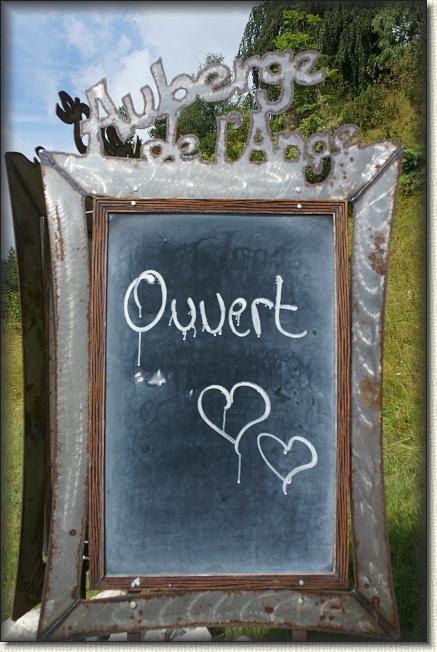 Auberge
de l'Ange
Ouvert